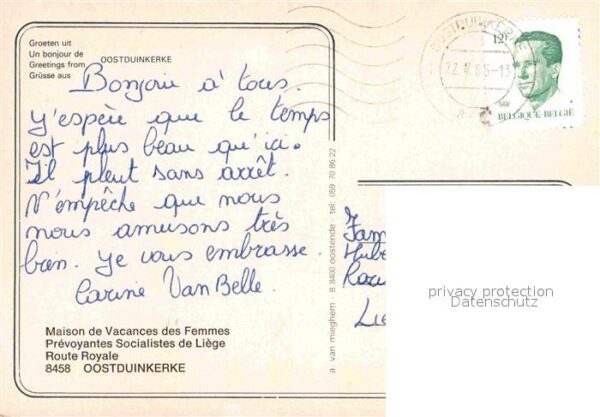 Groeten uit
Un bonjour de
Greetings from OOSTDUINKERKE
Grüsse aus
Bonjour à tous.
J'espère que le temps
est plus beau qu'ici.
Il pleut sans arrêt.
N'empêche que nous
nous amusons très
bien. Je vous embrasse.
Carine Van Belle.
Maison de Vacances des Femmes
Prévoyantes Socialistes de Liège
Route Royale
8458 OOSTDUINKERKE
a. van mieghem · B 8400 oostende · tel. 059 70 86 22
OOSTDUINKERKE
12F
BELGIQUE·BELGIË
Fam
Hube
Lie
privacy protection
Datenschutz